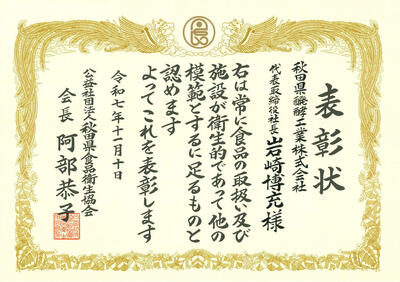 表彰状
秋田県醗酵工業株式会社
代表取締役社長 岩崎博充様
右は常に食品の取扱い及び
施設が衛生的であって他の
模範とするに足るものと
認めます
よってこれを表彰します
令和七年十一月十日
公益社団法人秋田県食品衛生協会
会長 阿部恭子